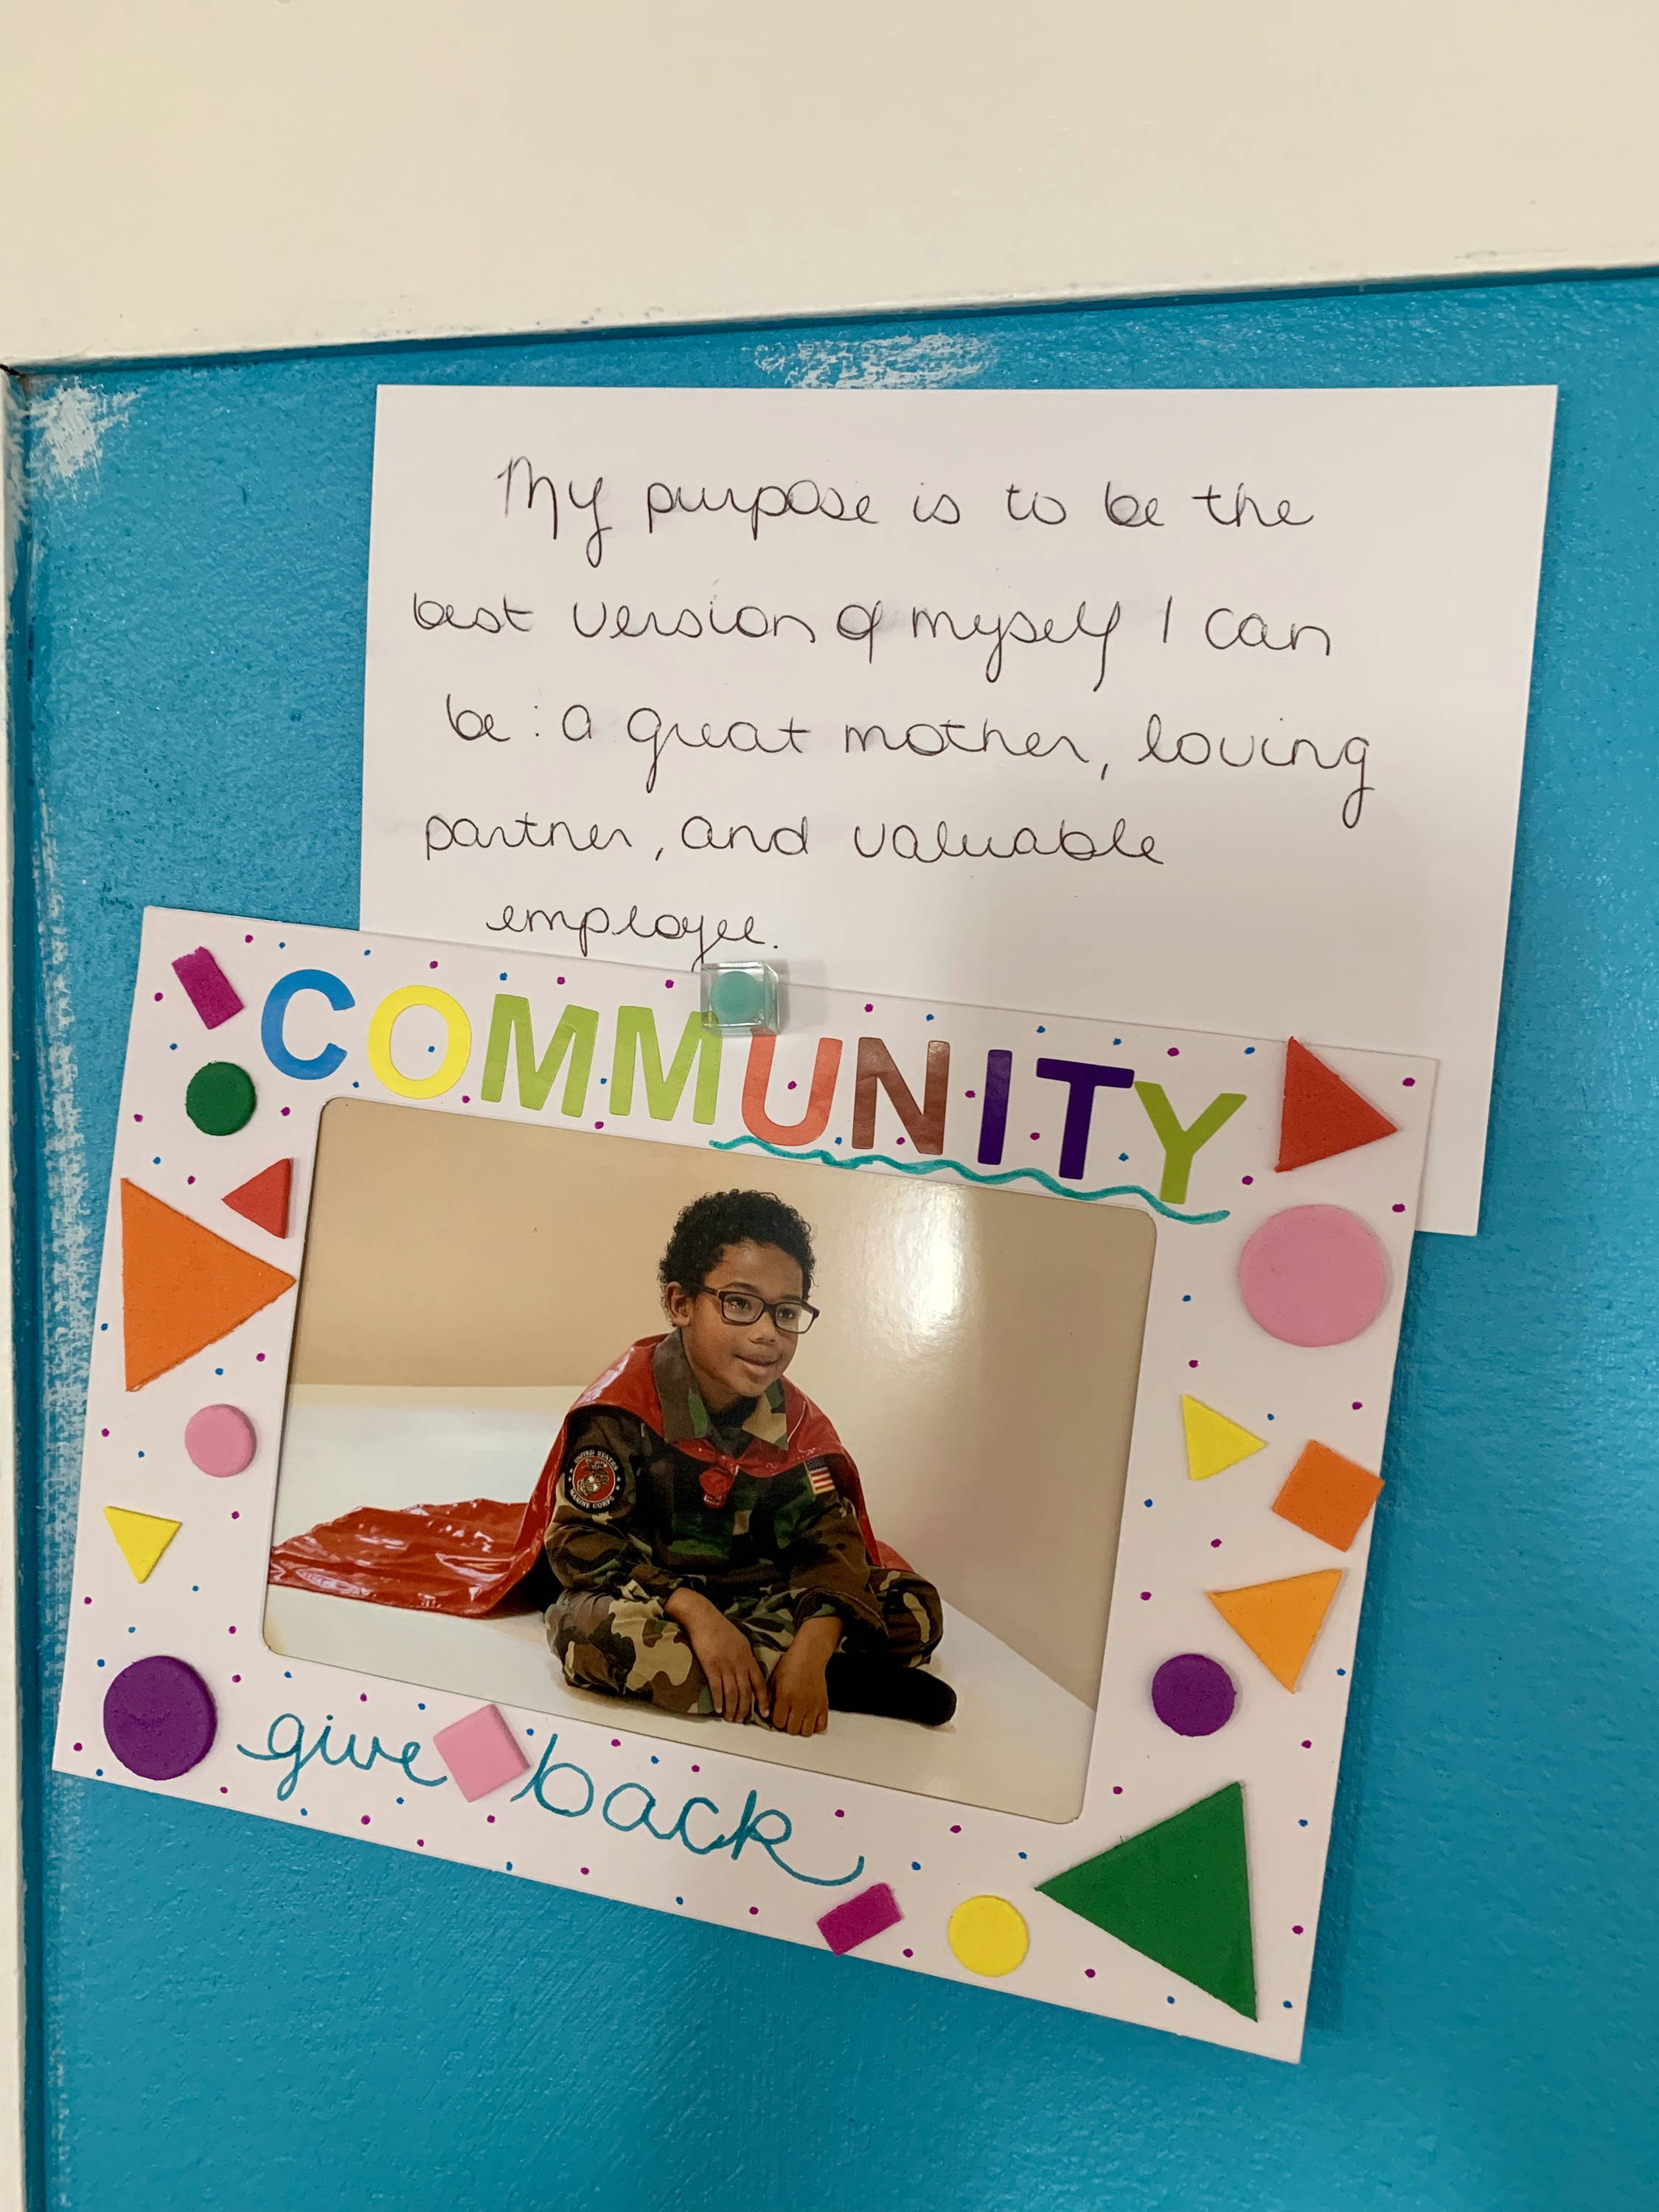 My purpose is to be the
best version of myself I can
be: a great mother, loving
partner, and valuable
employee.
COMMUNITY
UNITED STATES
MARINE CORPS
give back